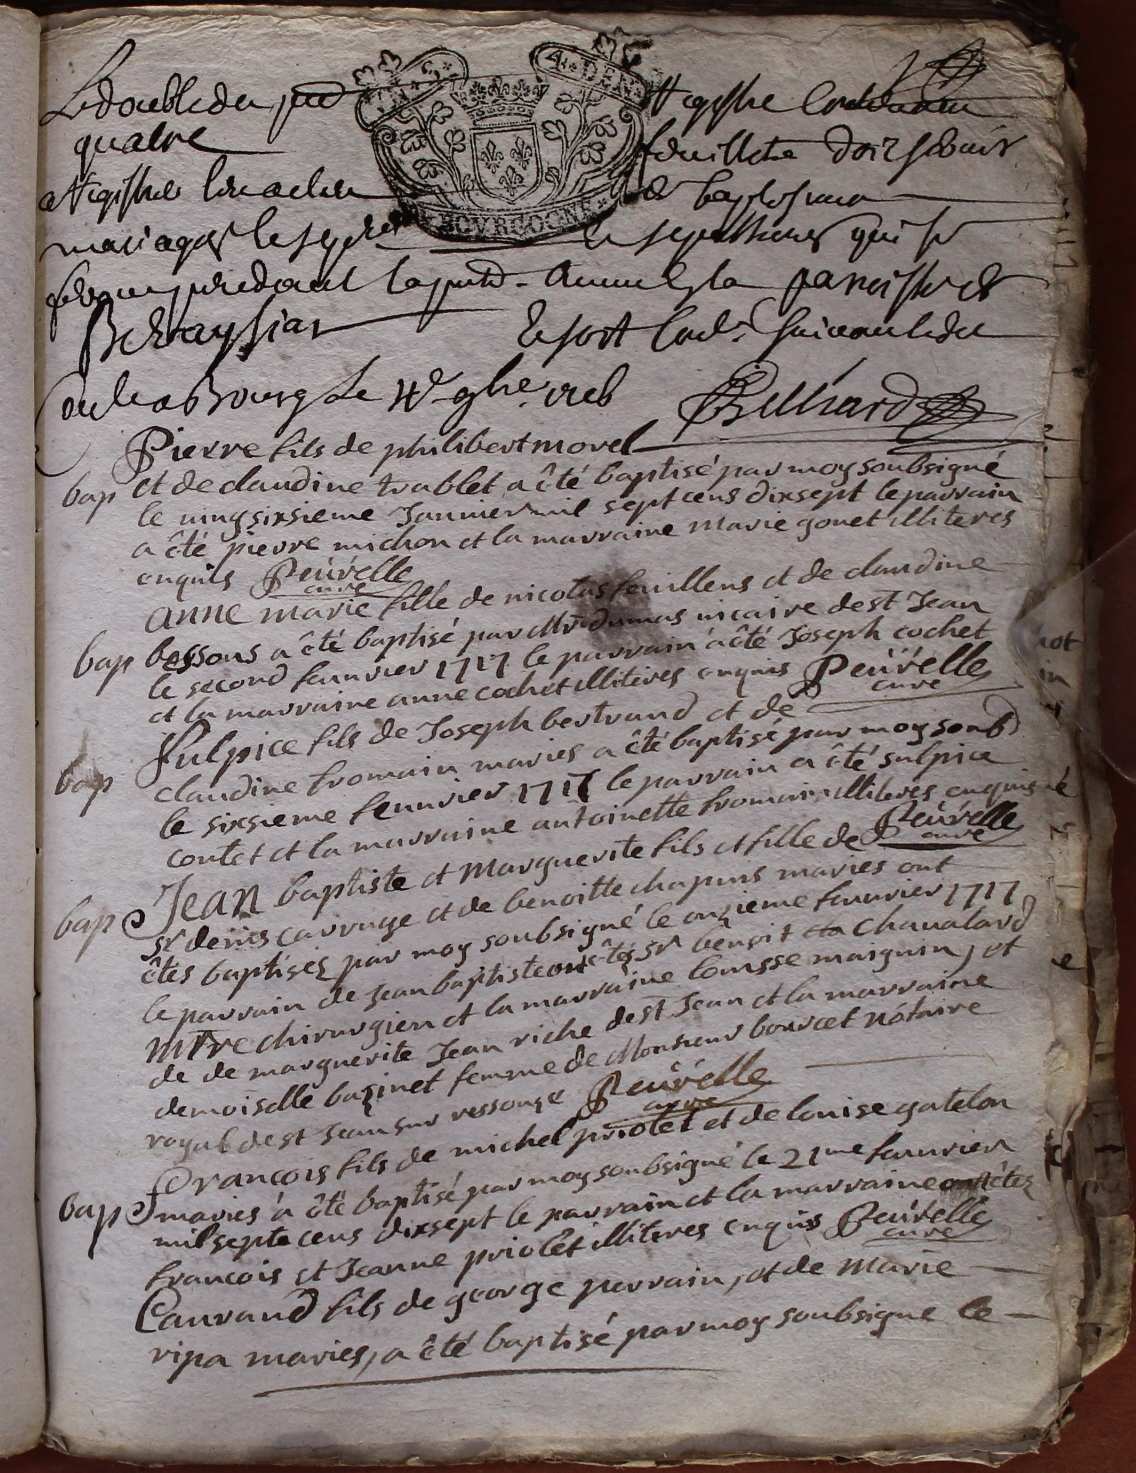 Le double du pnt Registre contenant
IN·S· 4·DEN
quatre feuillets doit servir
Registre les actes de baptesmes
BOVRGOGNE
mariages et sepultures qui se
feront pendant la pnte annee de la paroisse de
Beraysiat
a Bourg le 4e 9bre 1716 Billiard
Pierre fils de philibert morel
bap et de claudine trablet a êté baptisé par moy soubsigné
le vingsixsieme Januier mil sept cens dixsept le parrain
a êté pierre michon et la marraine marie gonet illiteres
enquis Peúrelle
curé
anne marie fille de nicolas feuillens et de claudine
bap bessons a êté baptisé par Mr dumas vicaire de st Jean
le second feurvrier 1717 le parrain a êté Joseph cochet
et la marraine anne cochet illiteres enquis Peúrelle
curé
Sulpice fils de Joseph bertrand et de
bap claudine fromain maries a êté baptisé par moy soub
le sixsieme feuurier 1717 le parrain a êté sulpice
contet et la marraine antoinette fromain illiteres enquis né
Peúrelle
curé
Jean baptiste et marguerite fils et fille de
bap sr denis carruge et de benoitte chapuis maries ont
êtés baptisés par moy soubsigné le onzieme feuurier 1717
le parrain de Jean baptiste ont êtés sr benoit chaualard
mtre chirurgien et la marraine louisse maignin, et
de de marguerite Jean riche de st Jean et la marraine
demoiselle bazinet femme de Monsieur bourcet nótaire
royal de st Jean sur ressouze Peúrelle
curé
francois fils de michel priolet et de louise gatelon
bap maries á êté baptisé par moy soubsigné le 21me feuurier
mil septe cens dixsept le parrain et la marraine ont êtez
francois et Jeanne priolet illiteres enquis Peúrelle
curé
Laurand fils de george perrain, et de marie
ripa maries, a êté baptisé par moy soubsigne le